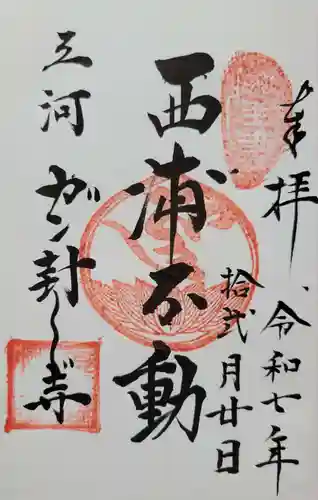 奉拝
令和七年
拾弐月廿日
西浦不動
三河
ガン封じ寺